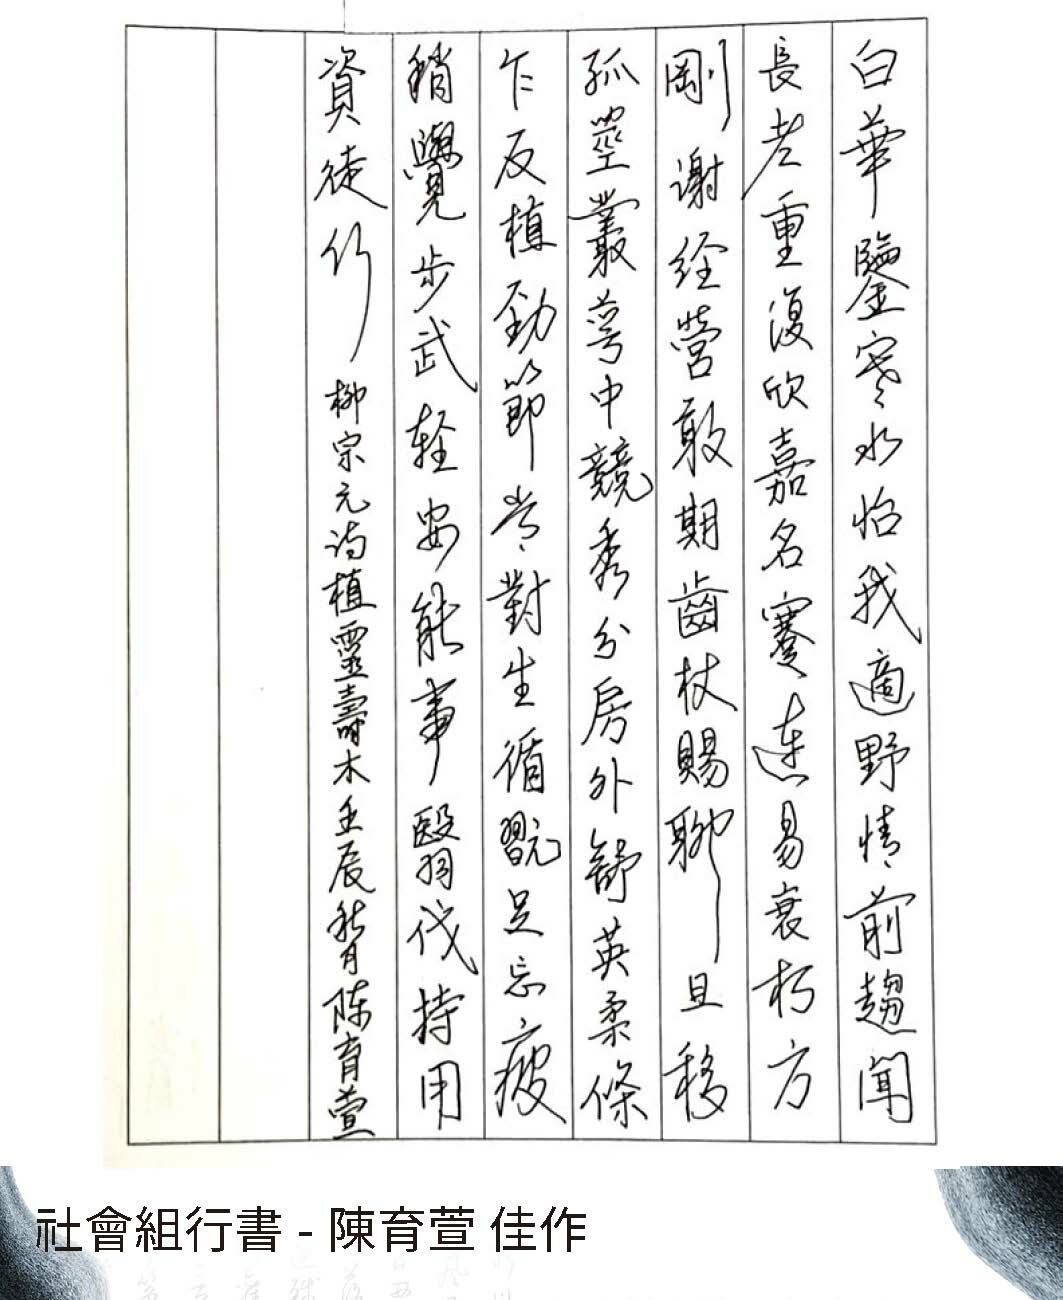 白華鑒寒水怡我適野情前趨聞
長老重復欣嘉名蹇連易衰朽方
剛謝經營敢期齒杖賜聊且移
孤莖叢萼中競秀分房外舒英柔條
乍反植勁節常對生循翫足忘疲
稍覺步武輕安能事翳伐持用
資徒行 柳宗元詩植靈壽木壬辰秋月陳育萱
社會組行書 - 陳育萱 佳作